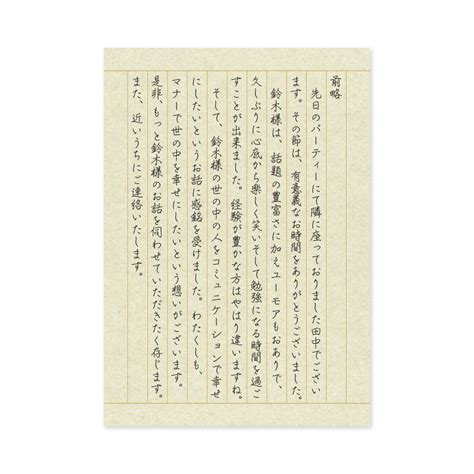 前略
先日のパーティーにて隣に座っておりました田中でござい
ます。その節は、有意義なお時間をありがとうございました。
鈴木様は、話題の豊富さに加えユーモアもおありで、
久しぶりに心底から楽しく笑いそして勉強になる時間を過ご
すことが出来ました。経験が豊かな方はやはり違いますね。
そして、鈴木様の世の中の人をコミュニケーションで幸せ
にしたいというお話に感銘を受けました。わたくしも、
マナーで世の中を幸せにしたいという想いがございます。
是非、もっと鈴木様のお話を伺わせていただきたく存じます。
また、近いうちにご連絡いたします。